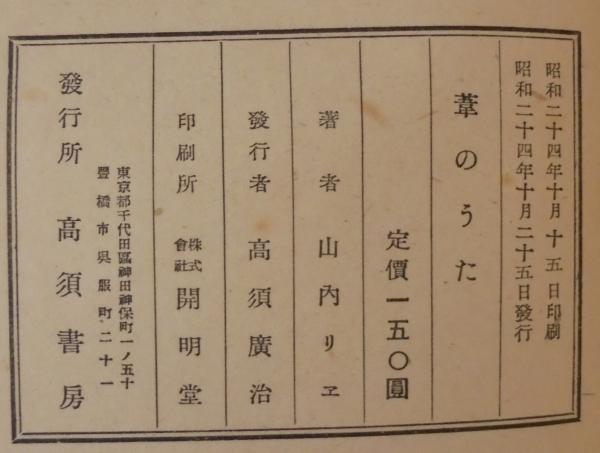 昭和二十四年十月十五日印刷
昭和二十四年十月二十五日發行
葦のうた
定價一五〇圓
著者 山内リヱ
發行者 高須廣治
印刷所 株式會社 開明堂
東京都千代田區神田神保町一ノ五十
豐橋市吳服町二十一
發行所 高須書房